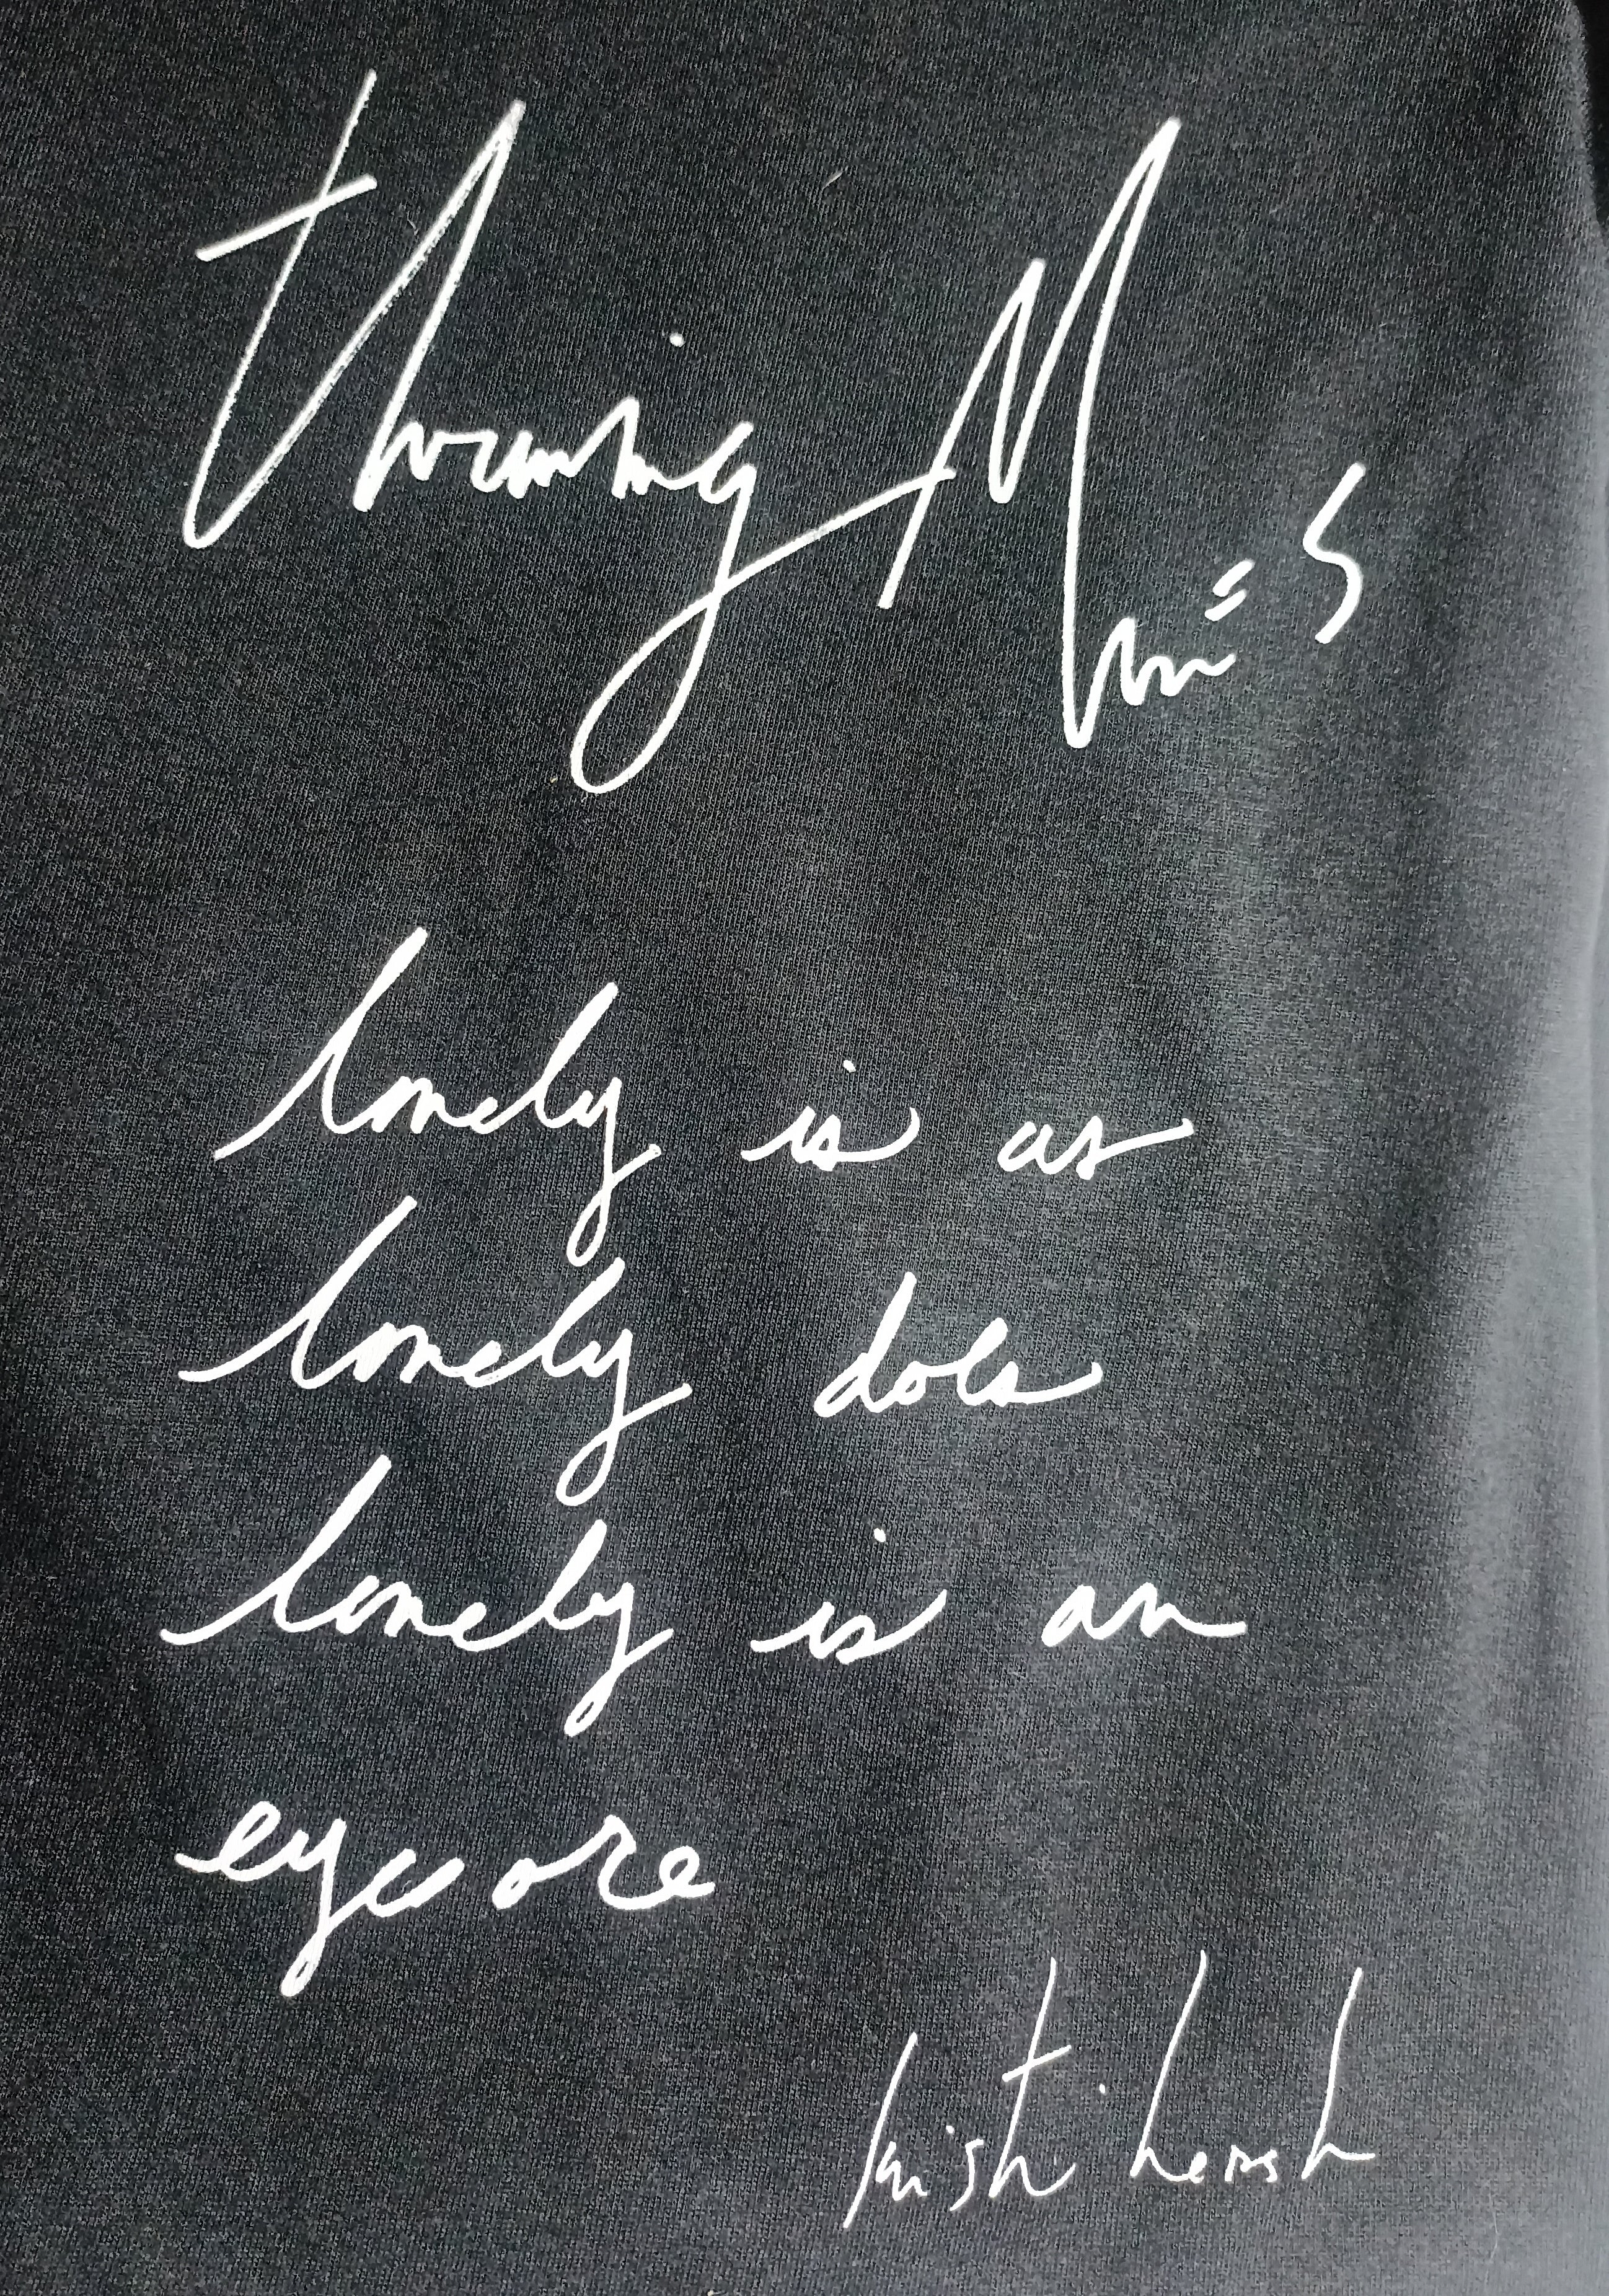 Throwing Muses
lonely is as
lonely does
lonely is an
eyesore
kristin hersh